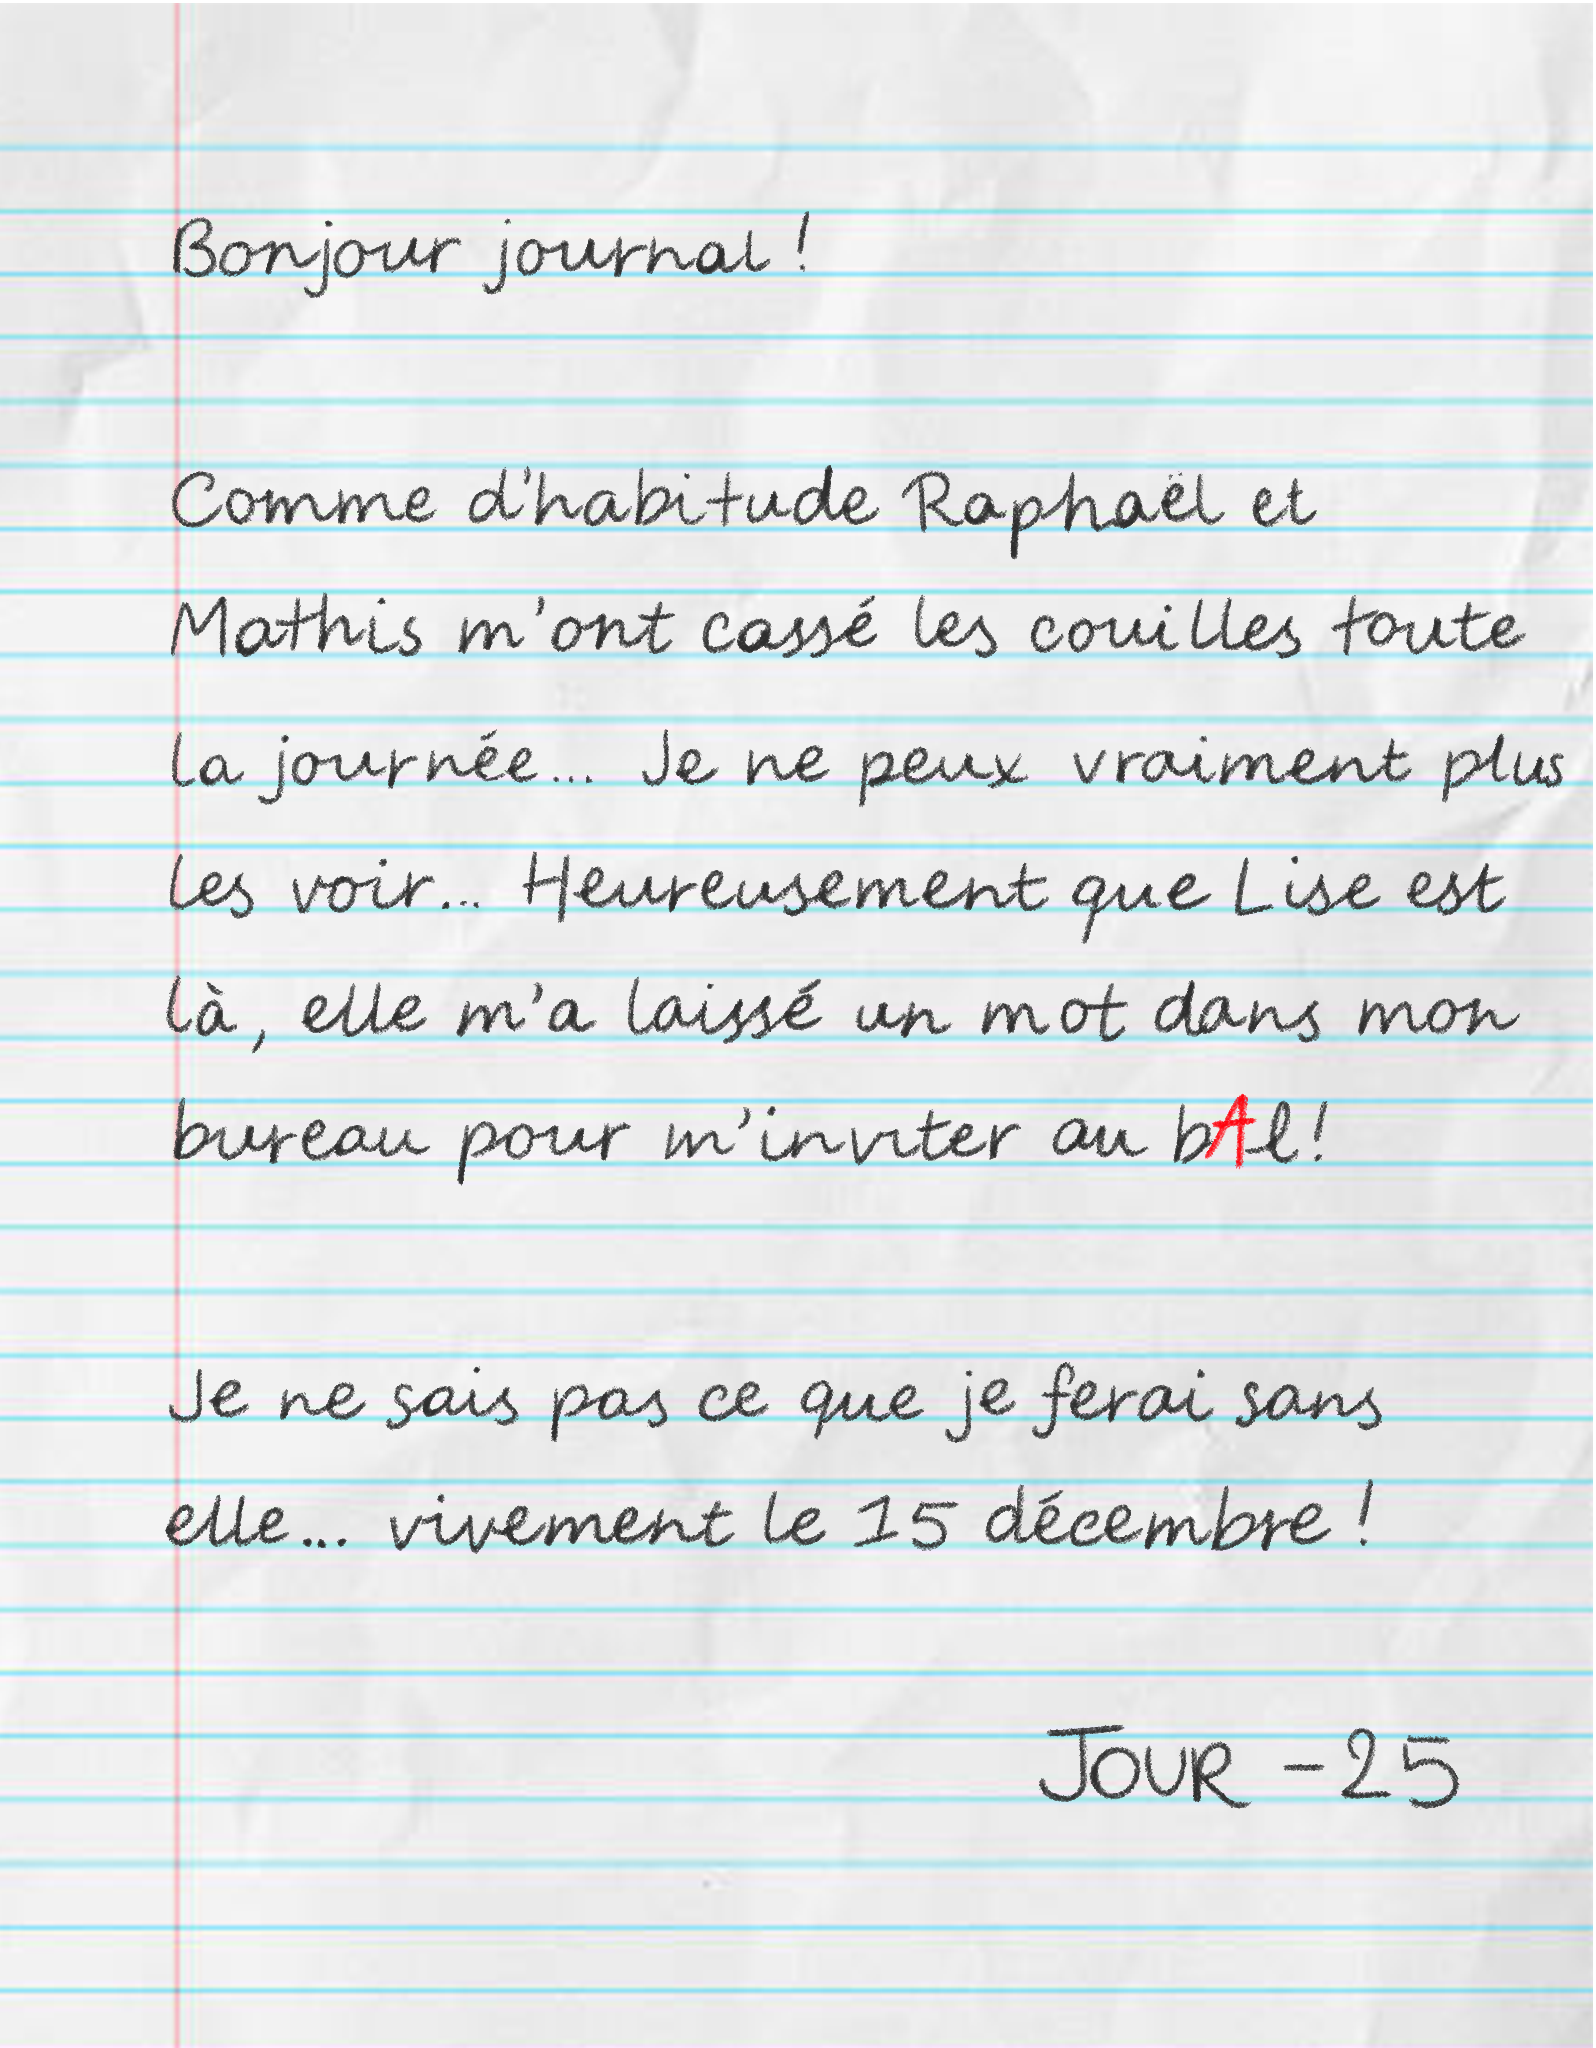 Bonjour journal !
Comme d'habitude Raphaël et
Mathis m'ont cassé les couilles toute
la journée... Je ne peux vraiment plus
les voir... Heureusement que Lise est
là, elle m'a laissé un mot dans mon
bureau pour m'inviter au bAl !
Je ne sais pas ce que je ferai sans
elle... vivement le 15 décembre !
JOUR -25